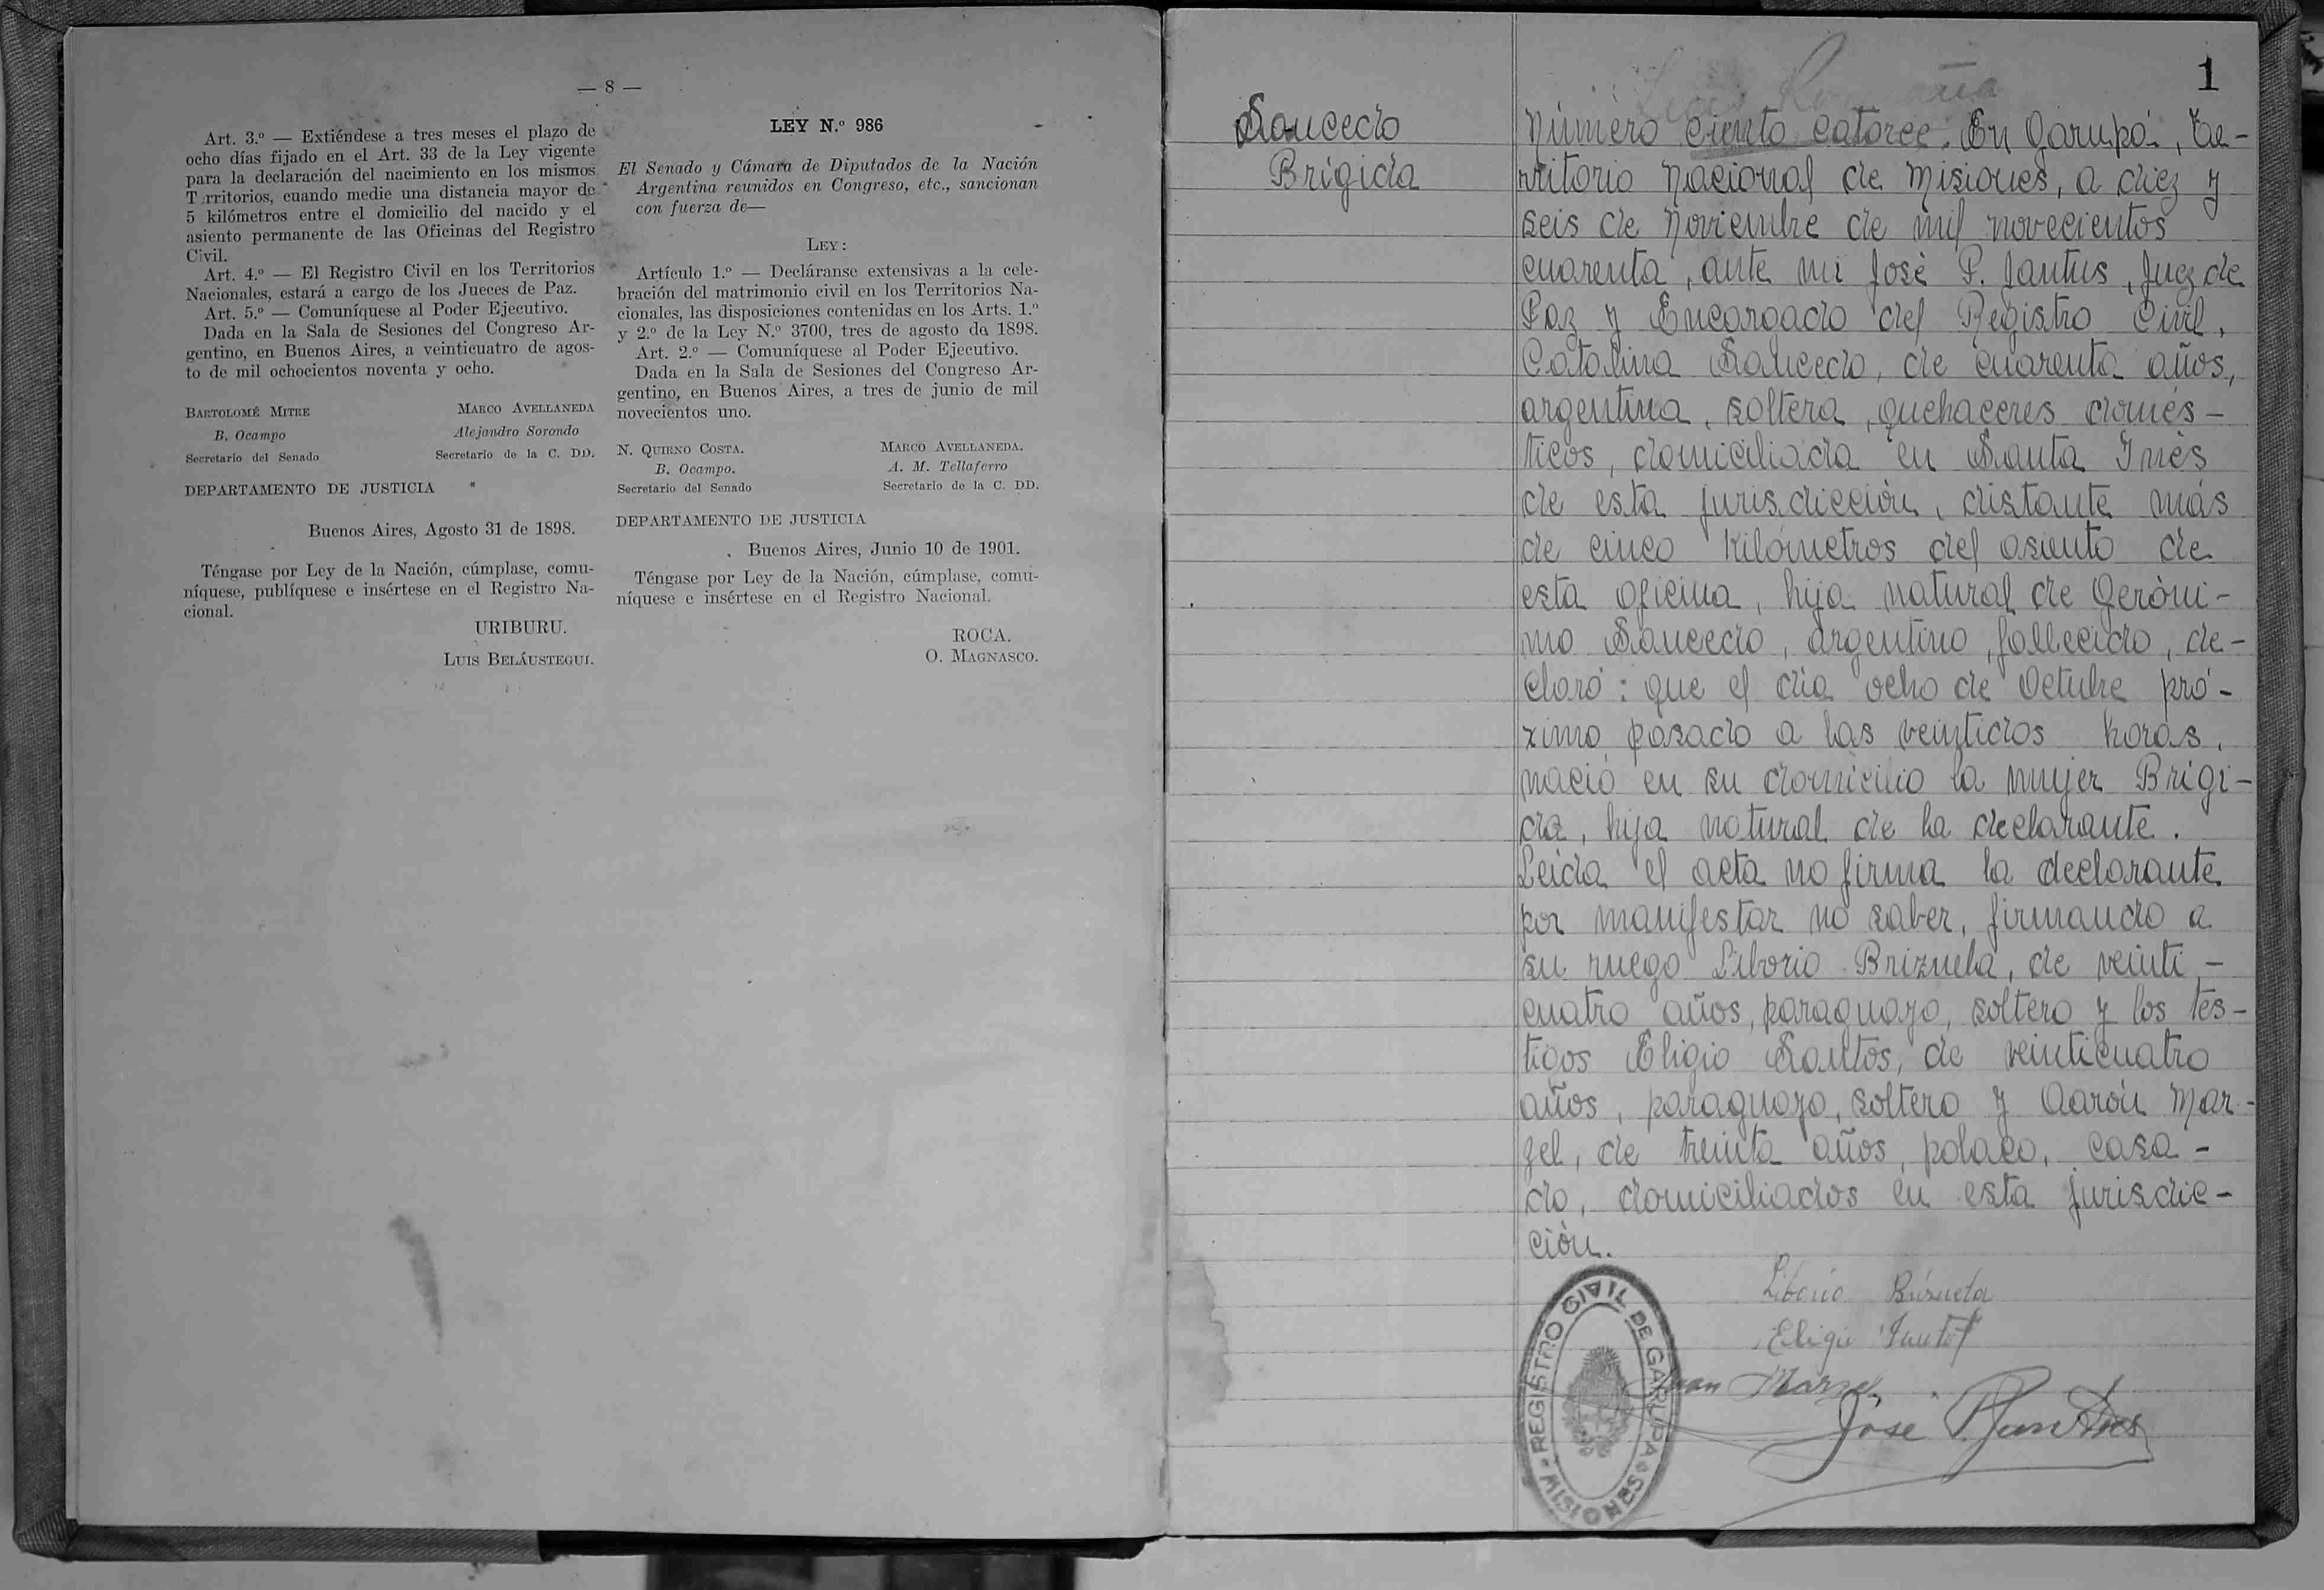 — 8 —
Art. 3.º — Extiéndese a tres meses el plazo de
ocho días fijado en el Art. 33 de la Ley vigente
para la declaración del nacimiento en los mismos
T rritorios, cuando medie una distancia mayor de
5 kilómetros entre el domicilio del nacido y el
asiento permanente de las Oficinas del Registro
Civil.
Art. 4.º — El Registro Civil en los Territorios
Nacionales, estará a cargo de los Jueces de Paz.
Art. 5.º — Comuníquese al Poder Ejecutivo.
Dada en la Sala de Sesiones del Congreso Ar-
gentino, en Buenos Aires, a veinticuatro de agos-
to de mil ochocientos noventa y ocho.
BARTOLOMÉ MITRE MARCO AVELLANEDA
B. Ocampo Alejandro Sorondo
Secretario del Senado Secretario de la C. DD.
DEPARTAMENTO DE JUSTICIA
Buenos Aires, Agosto 31 de 1898.
Téngase por Ley de la Nación, cúmplase, comu-
níquese, publíquese e insértese en el Registro Na-
cional.
URIBURU.
LUIS BELÁUSTEGUI.
LEY N.º 986
El Senado y Cámara de Diputados de la Nación
Argentina reunidos en Congreso, etc., sancionan
con fuerza de—
LEY:
Artículo 1.º — Decláranse extensivas a la cele-
bración del matrimonio civil en los Territorios Na-
cionales, las disposiciones contenidas en los Arts. 1.º
y 2.º de la Ley N.º 3700, tres de agosto de 1898.
Art. 2.º — Comuníquese al Poder Ejecutivo.
Dada en la Sala de Sesiones del Congreso Ar-
gentino, en Buenos Aires, a tres de junio de mil
novecientos uno.
N. QUIRNO COSTA. MARCO AVELLANEDA.
B. Ocampo. A. M. Tellaferro
Secretario del Senado Secretario de la C. DD.
DEPARTAMENTO DE JUSTICIA
Buenos Aires, Junio 10 de 1901.
Téngase por Ley de la Nación, cúmplase, comu-
níquese e insértese en el Registro Nacional.
ROCA.
O. MAGNASCO.
1
Saucedo
Brigida
Número ciento catorce. En Garupá, Te-
rritorio Nacional de Misiones, a diez y
seis de Noviembre de mil novecientos
cuarenta, ante mi José P. Jantus, Juez de
Paz y Encargado del Registro Civil,
Catalina Saucedo, de cuarenta años,
argentina, soltera, quehaceres domés-
ticos, domiciliada en Santa Inés
de esta jurisdicción, distante más
de cinco kilómetros del asiento de
esta oficina, hija natural de Geróni-
mo Saucedo, argentino, fallecido, de-
claró: que el día ocho de Octubre pró-
ximo pasado a las veintidos horas,
nació en su domicilio la mujer Brigi-
da, hija natural de la declarante.
Leida el acta no firma la declarante
por manifestar no saber, firmando a
su ruego Liborio Brizuela, de veinti-
cuatro años, paraguayo, soltero y los tes-
tigos Eligio Santos, de veinticuatro
años, paraguayo, soltero y Aarón Mar-
zel, de treinta años, polaco, casa-
do, domiciliados en esta jurisdic-
ción.
Liborio Brizuela
Eligio
Marzel
José P. Jantus
REGISTRO CIVIL DE GARUPA
MISIONES